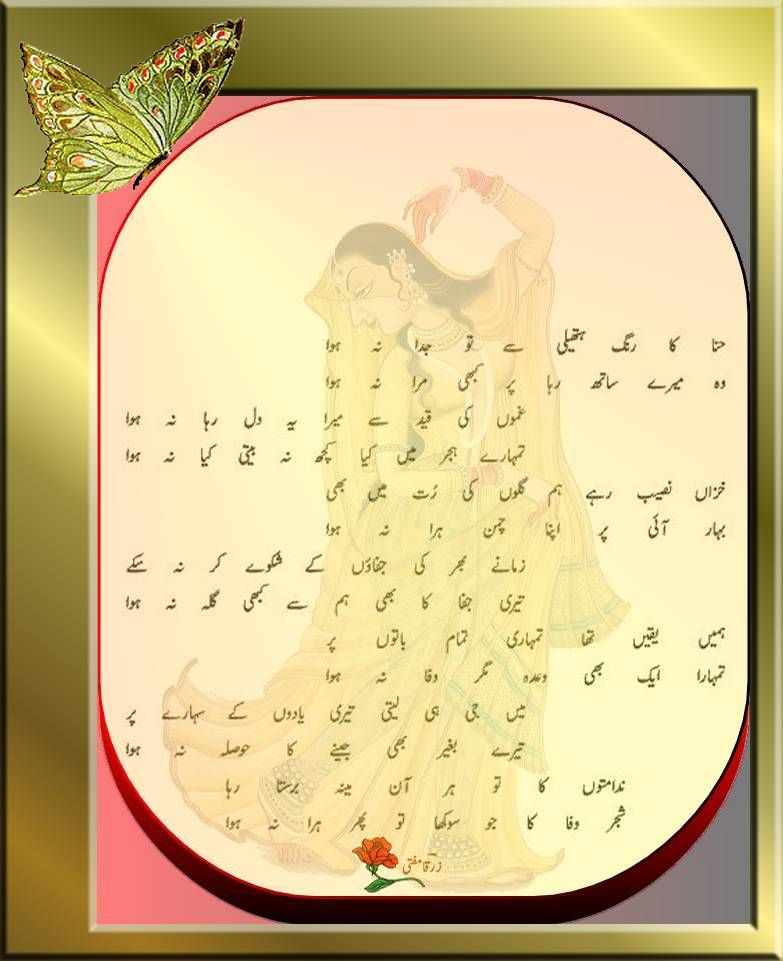 حنا کا رنگ ہتھیلی سے تو جدا نہ ہوا
وہ میرے ساتھ رہا پر کبھی مرا نہ ہوا
غموں کی قید سے میرا یہ دل رہا نہ ہوا
تمہارے ہجر میں کیا کچھ نہ بیتی کیا نہ ہوا
خزاں نصیب رہے ہم گلوں کی رُت میں بھی
بہار آئی پر اپنا چمن ہرا نہ ہوا
زمانے بھر کی جفاؤں کے شکوے کر نہ سکے
تیری جفا کا بھی ہم سے کبھی گلہ نہ ہوا
ہمیں یقیں تھا تمہاری تمام باتوں پر
تمہارا ایک بھی وعدہ مگر وفا نہ ہوا
میں جی ہی لیتی تیری یادوں کے سہارے پر
تیرے بغیر بھی جینے کا حوصلہ نہ ہوا
ندامتوں کا تو ہر آن مینہ برستا رہا
شجر وفا کا جو سوکھا تو پھر ہرا نہ ہوا
زرقا مفتی